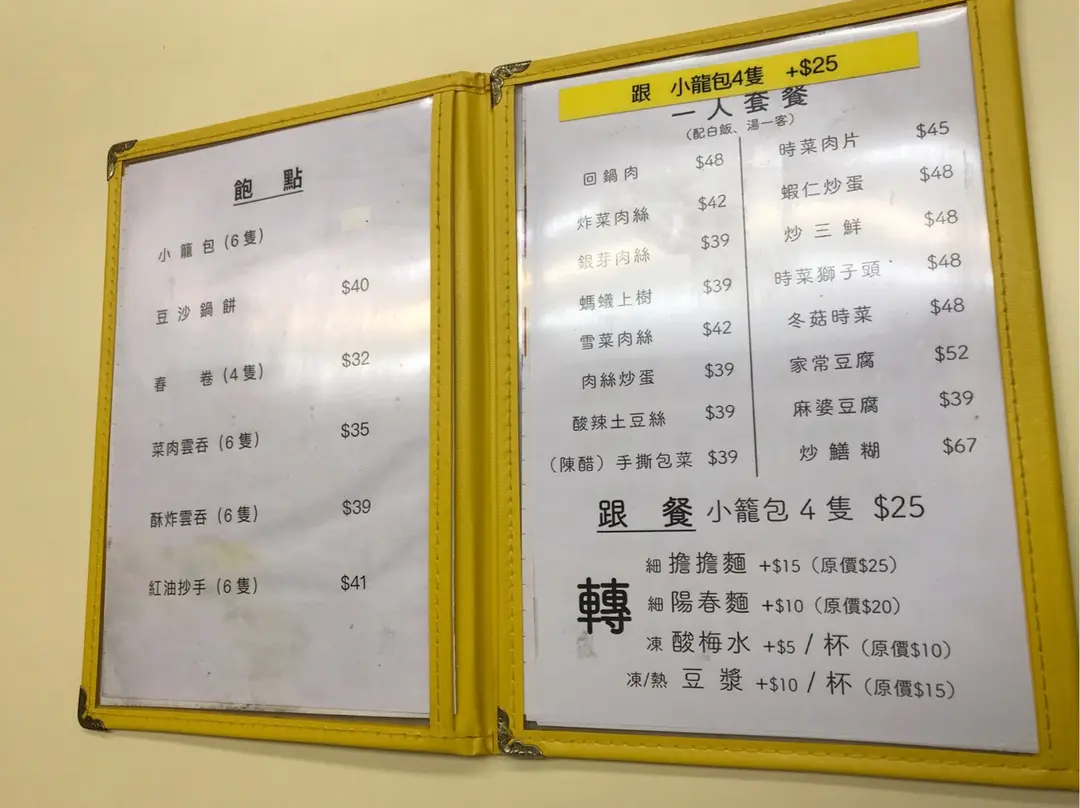 飽 點
小籠包(6隻)
豆沙鍋餅 $40
春 卷(4隻) $32
菜肉雲吞(6隻) $35
酥炸雲吞(6隻) $39
紅油抄手(6隻) $41
跟 小龍包4隻 +$25
一人套餐
(配白飯、湯一客)
回鍋肉 $48
炸菜肉絲 $42
銀芽肉絲 $39
螞蟻上樹 $39
雪菜肉絲 $42
肉絲炒蛋 $39
酸辣土豆絲 $39
(陳醋)手撕包菜 $39
時菜肉片 $45
蝦仁炒蛋 $48
炒三鮮 $48
時菜獅子頭 $48
冬菇時菜 $48
家常豆腐 $52
麻婆豆腐 $39
炒鱔糊 $67
跟 餐 小籠包 4 隻 $25
轉
細 擔擔麵 +$15 (原價$25)
細 陽春麵 +$10 (原價$20)
凍 酸梅水 +$5 / 杯 (原價$10)
凍/熱 豆漿 +$10 / 杯 (原價$15)